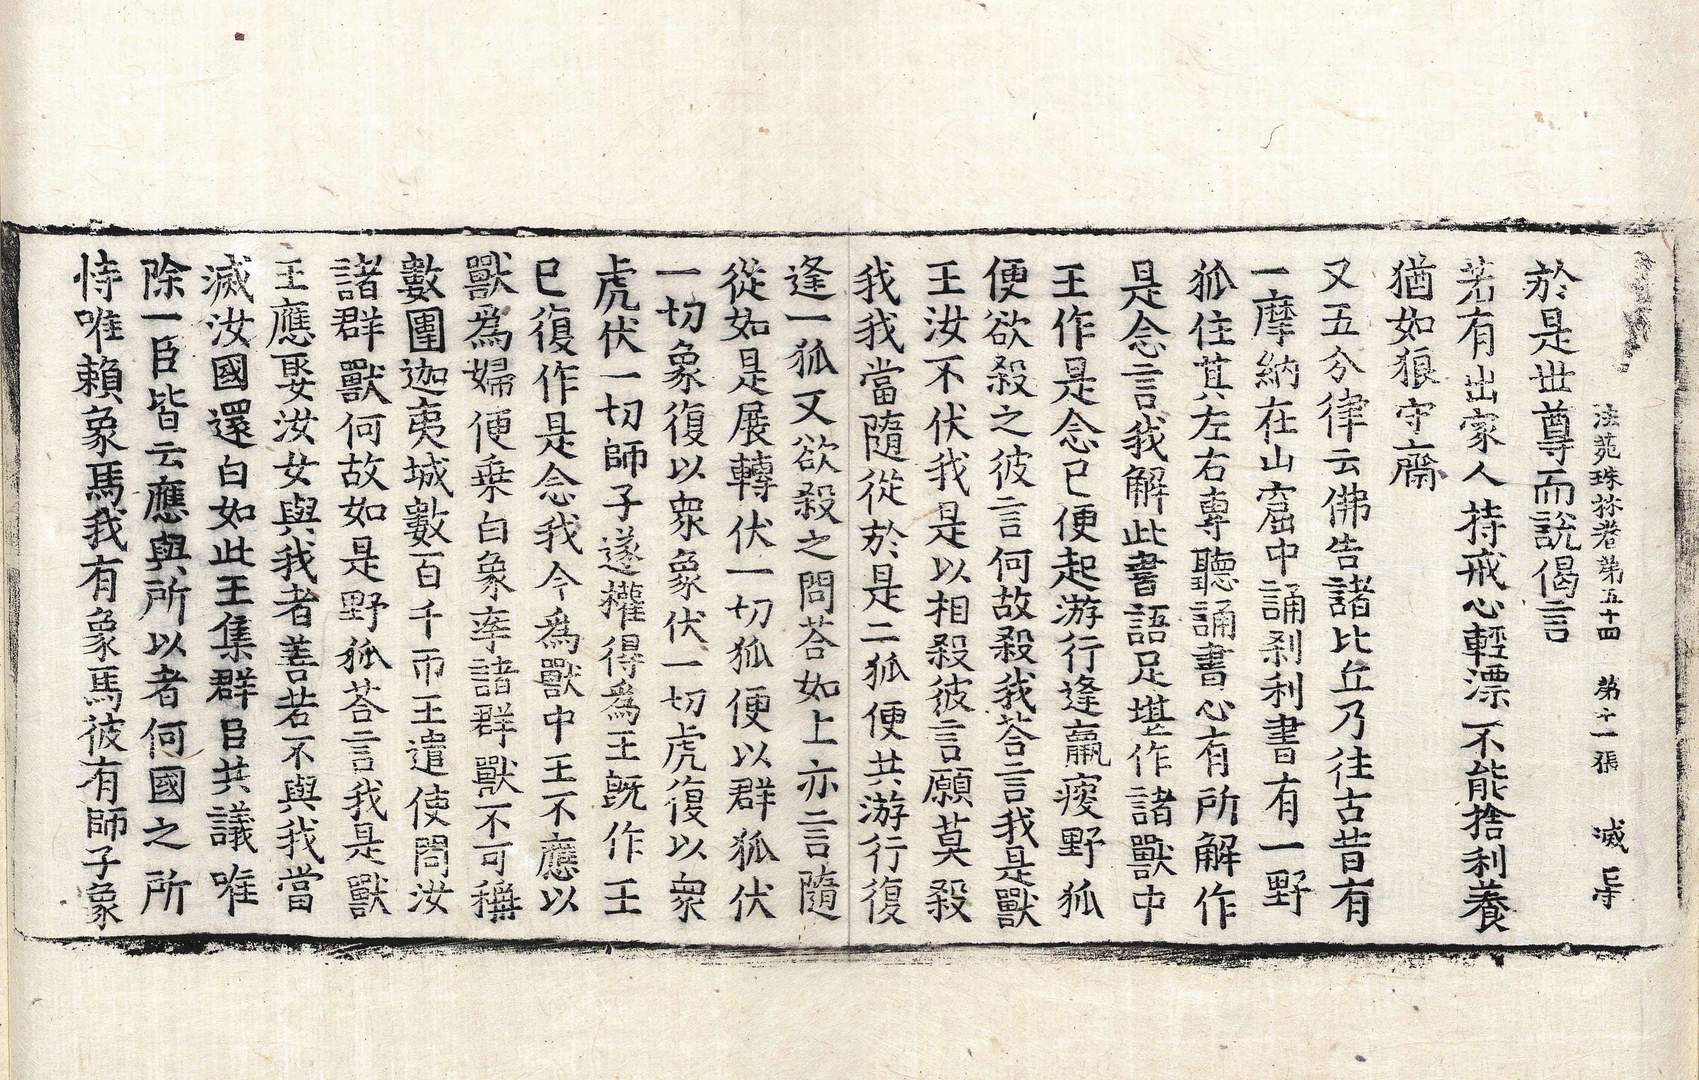 法苑珠林卷第五十四 第十一張 滅
於是世尊而說偈言
若有出家人持戒心輕漂不能捨利養
猶如狼守齋
又五分律云佛告諸比丘乃往古昔有
一摩納在山窟中誦刹利書有一野
狐住其左右專聽誦書心有所解作
是念言我解此書語足堪作諸獸中
王作是念已便起游行逢羸瘦野狐
便欲殺之彼言何故殺我荅言我是獸
王汝不伏我是以相殺彼言願莫殺
我我當隨從於是二狐便共游行復
逢一狐又欲殺之問荅如上亦言隨
從如是展轉伏一切狐便以群狐伏
一切象復以衆象伏一切虎復以衆
虎伏一切師子遂權得爲王旣作王
已復作是念我今爲獸中王不應以
獸爲婦便乗白象率諸群獸不可稱
數圍迦夷城數百千帀王遣使問汝
諸群獸何故如是野狐荅言我是獸
王應娶汝女與我者善若不與我當
滅汝國還白如此王集群臣共議唯
除一臣皆云應與所以者何國之所
恃唯賴象馬我有象馬彼有師子象